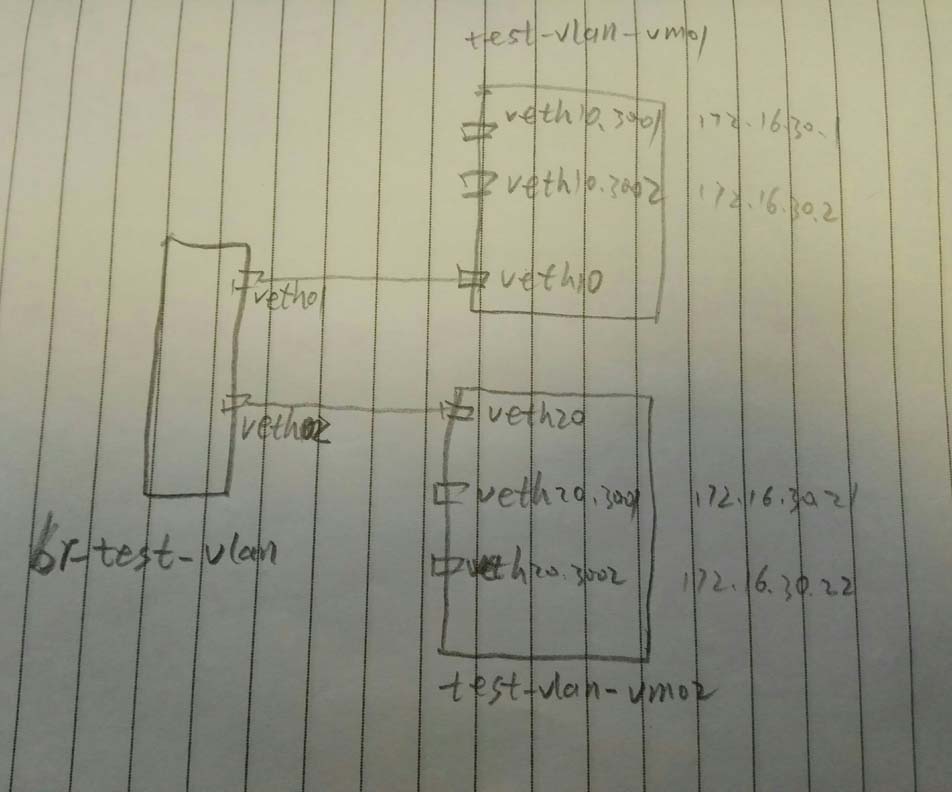 test-vlan-vm01
veth10.3001 172.16.30.1
veth10.3002 172.16.30.2
veth10
veth01
veth20
veth02
veth20.3001 172.16.30.21
br-test-vlan
veth20.3002 172.16.30.22
test-vlan-vm02